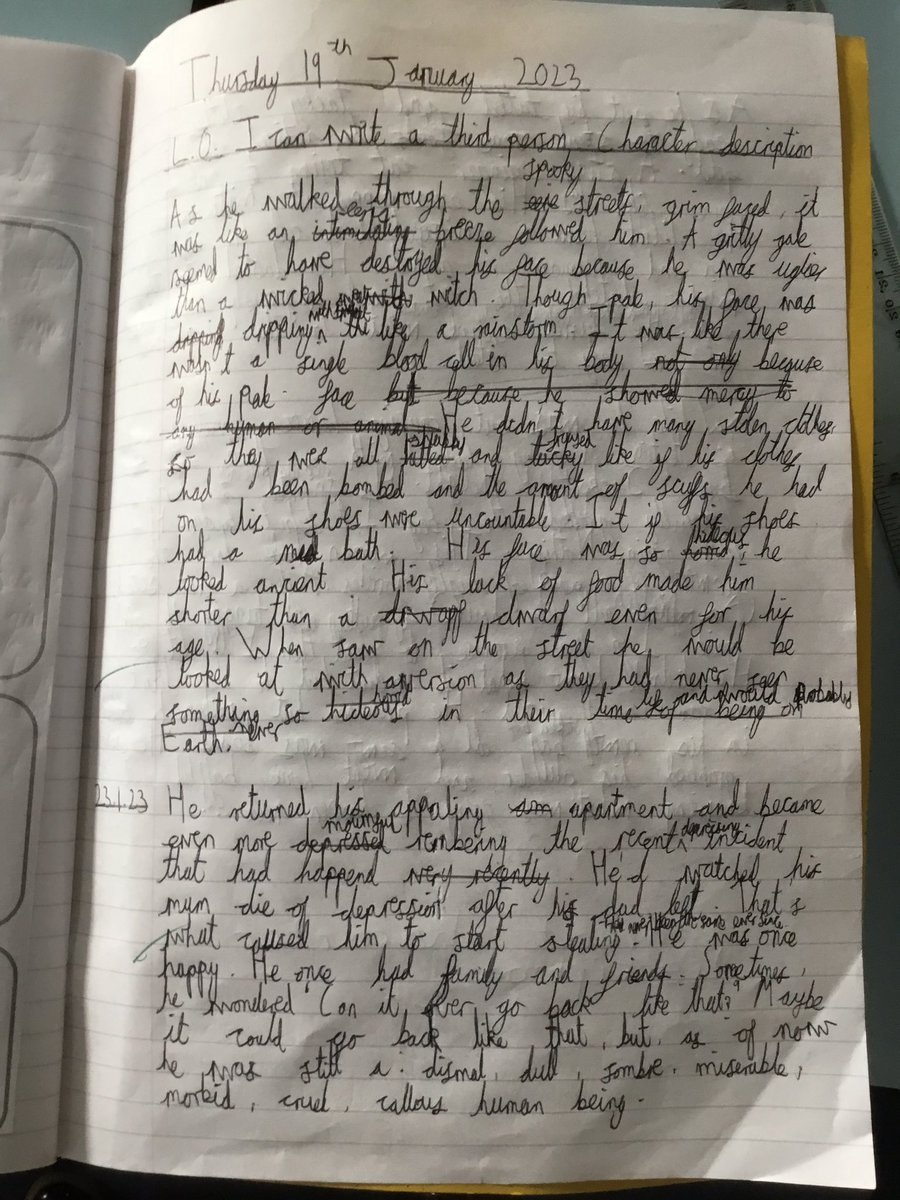 Thursday 19th January 2023
L.O. I can write a third person Character description
As he walked through the spooky streets, grim faced, it
was like an eerie intimidating breeze followed him. A gritty gale
seemed to have destroyed his face because he was uglier
than a wicked witch. Though pale, his face was
dripping dripping like a rainstorm. It was like there
wasn't a single blood cell in his body not only because
of his pale face but because he showed mercy to
any human or animal. He didn't have many stolen clothes
so they were all shabby and like if his clothes
had been bombed and the amount of scuffs he had
on his shoes were uncountable. It if his shoes
had a mud bath. His face was so hideous he
looked ancient. His lack of food made him
shorter than a dwarf even for his
age. When saw on the street he would be
looked at with aversion as they had never seen
something so hideous in their time life and would probably never being on
Earth.
23.1.23 He returned his appaling apartment and became
even more depressed mournful rembering the recent depressing incident
that had happend very recently. He'd watched his
mum die of depression after his dad left. That's
what caused him to start stealing. He was once
happy. He once had family and friends. Sometimes,
he wondered 'Can it ever go back like that?' Maybe
it could go back like that, but, as of now
he was still a dismal, dull, sombre, miserable,
morbid, cruel, callous human being.